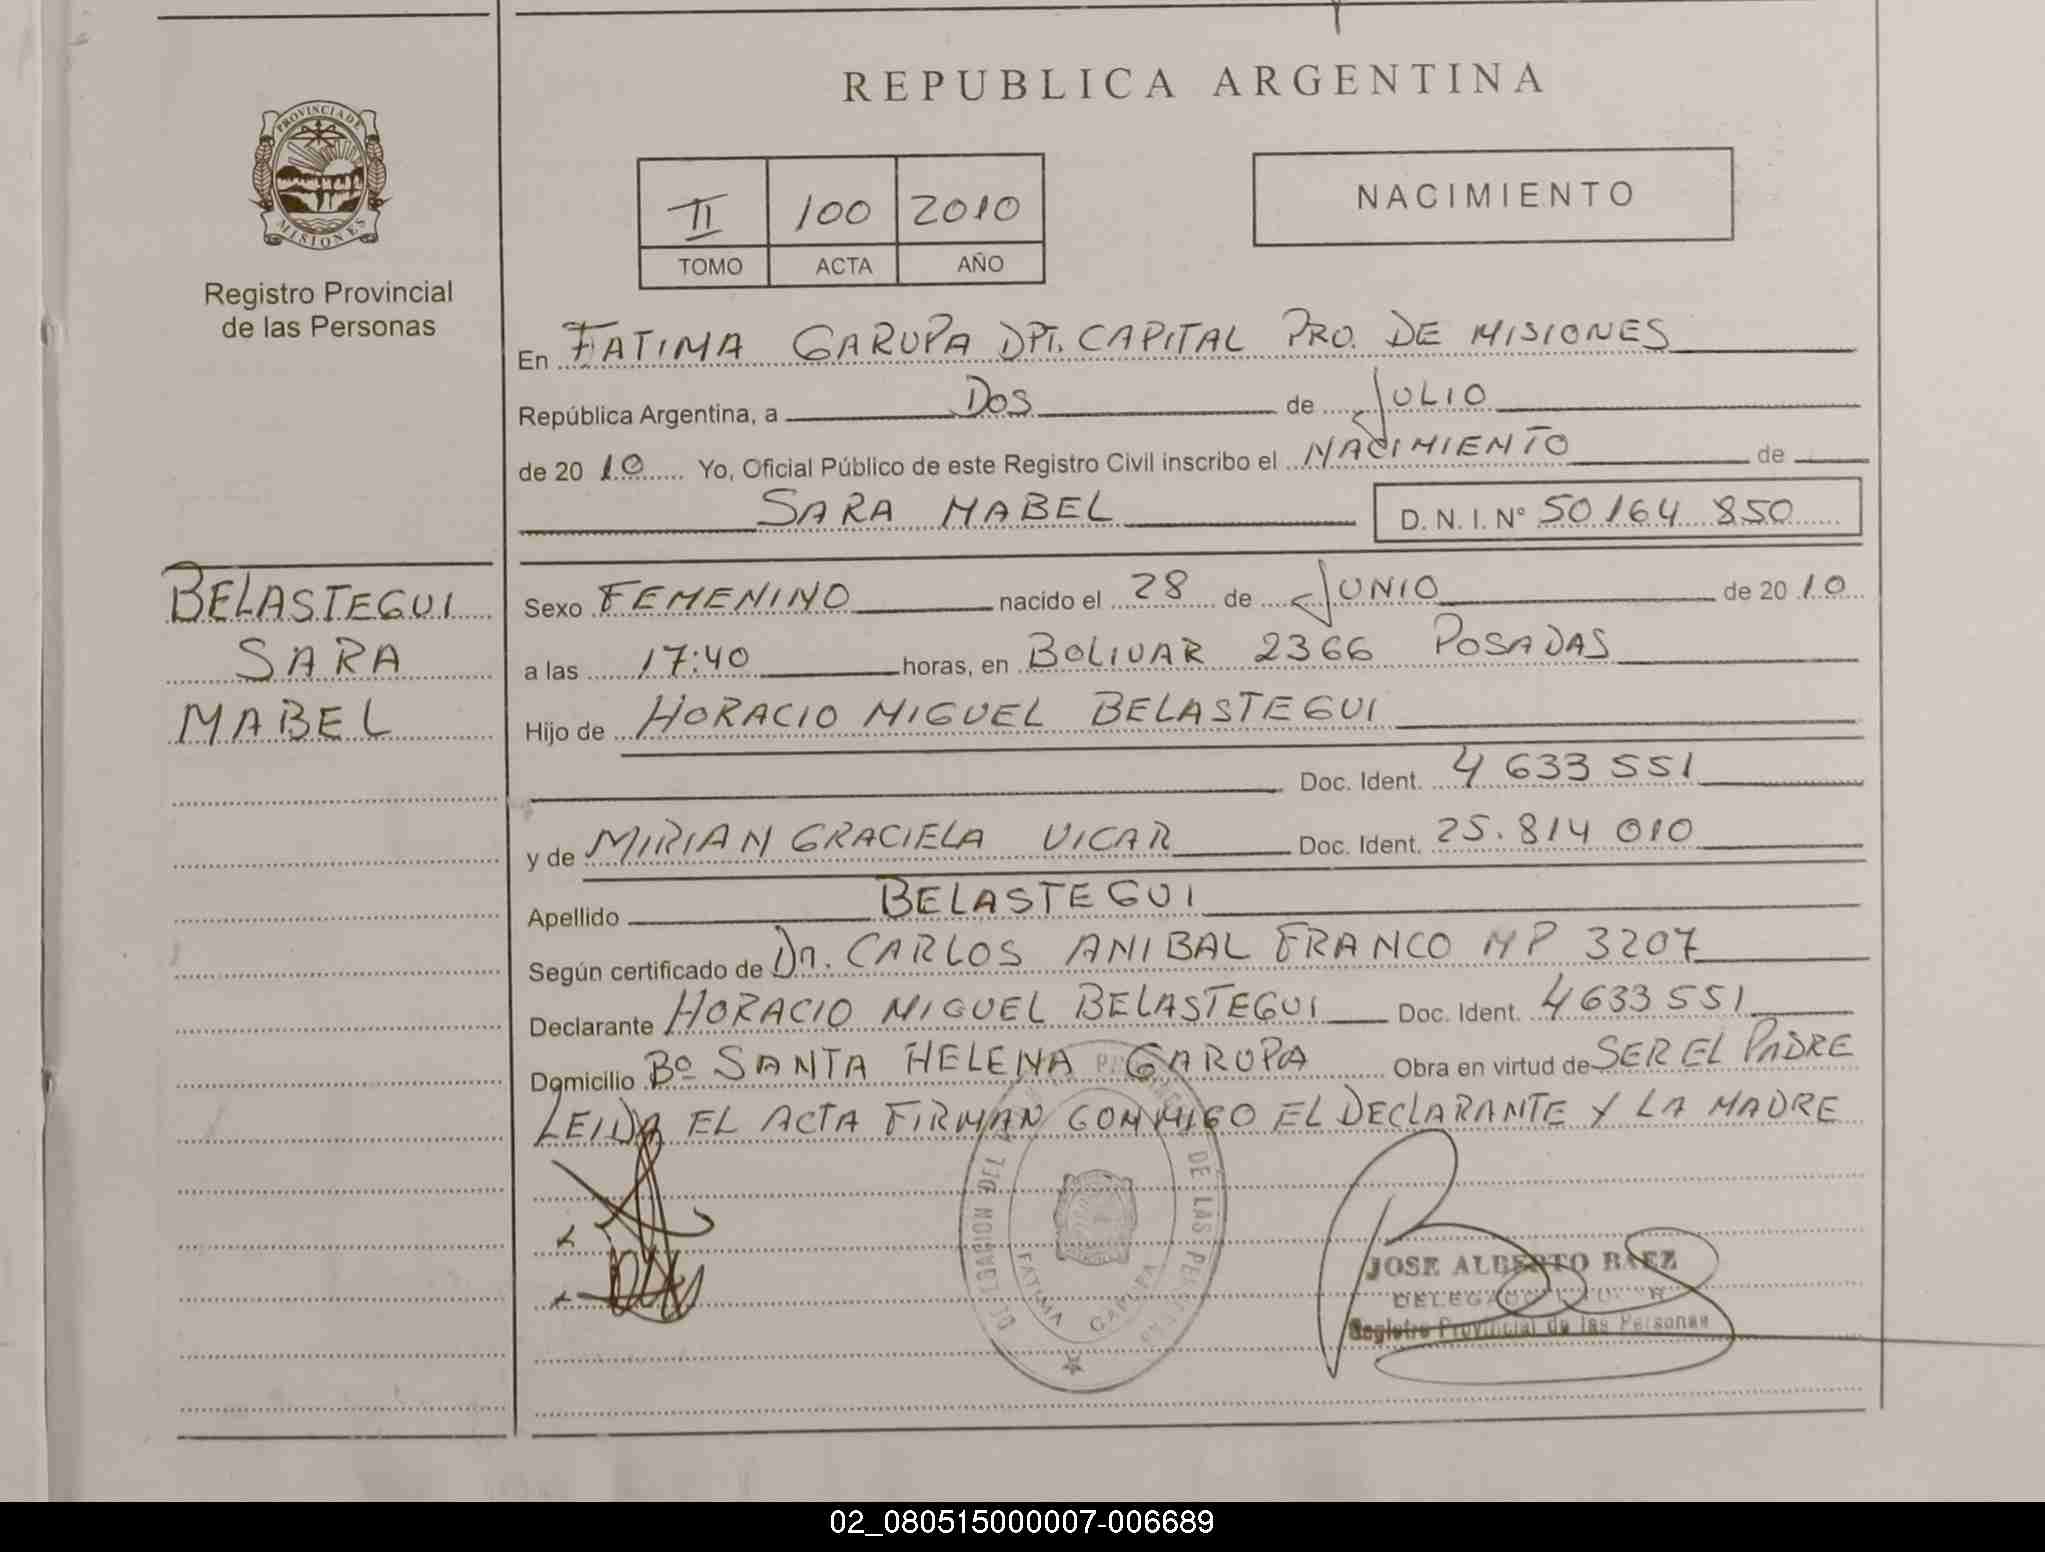 REPUBLICA ARGENTINA
PROVINCIA DE
MISIONES
Registro Provincial
de las Personas
II 100 2010
TOMO ACTA AÑO
NACIMIENTO
En FATIMA GARUPA DPT. CAPITAL PRO. DE MISIONES
República Argentina, a DOS de JULIO
de 20 10 Yo, Oficial Público de este Registro Civil inscribo el NACIMIENTO de
SARA MABEL D. N. I. Nº 50 164 850
BELASTEGUI
SARA
MABEL
Sexo FEMENINO nacido el 28 de JUNIO de 20 10
a las 17:40 horas, en BOLIVAR 2366 POSADAS
Hijo de HORACIO MIGUEL BELASTEGUI
Doc. Ident. 4 633 551
y de MIRIAN GRACIELA VICAR Doc. Ident. 25.814 010
Apellido BELASTEGUI
Según certificado de Dr. CARLOS ANIBAL FRANCO MP 3207
Declarante HORACIO MIGUEL BELASTEGUI Doc. Ident. 4 633 551
Domicilio Bº SANTA HELENA GARUPA Obra en virtud de SER EL PADRE
LEIDA EL ACTA FIRMAN CONMIGO EL DECLARANTE Y LA MADRE
DELEGACION DEL DE LAS
FATIMA GARUPA
JOSE ALBERTO BAEZ
Registro Provincial de las Personas
02_080515000007-006689